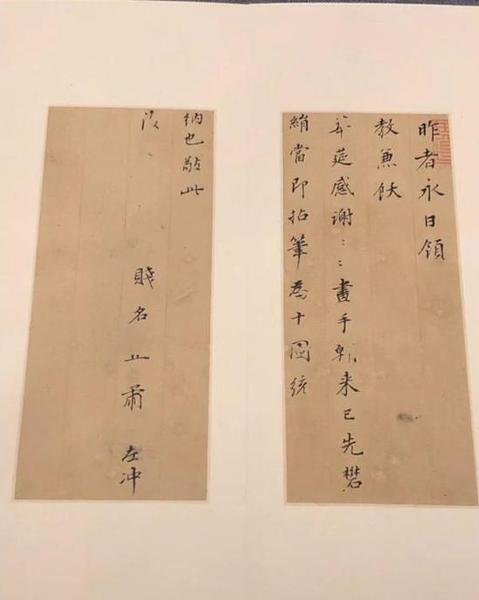 昨者永日領
教兼飫
華筵感謝：：畫手到来已先礬
絹當即拈筆為十圖統
納也敬此
復
賤名正肅 左冲